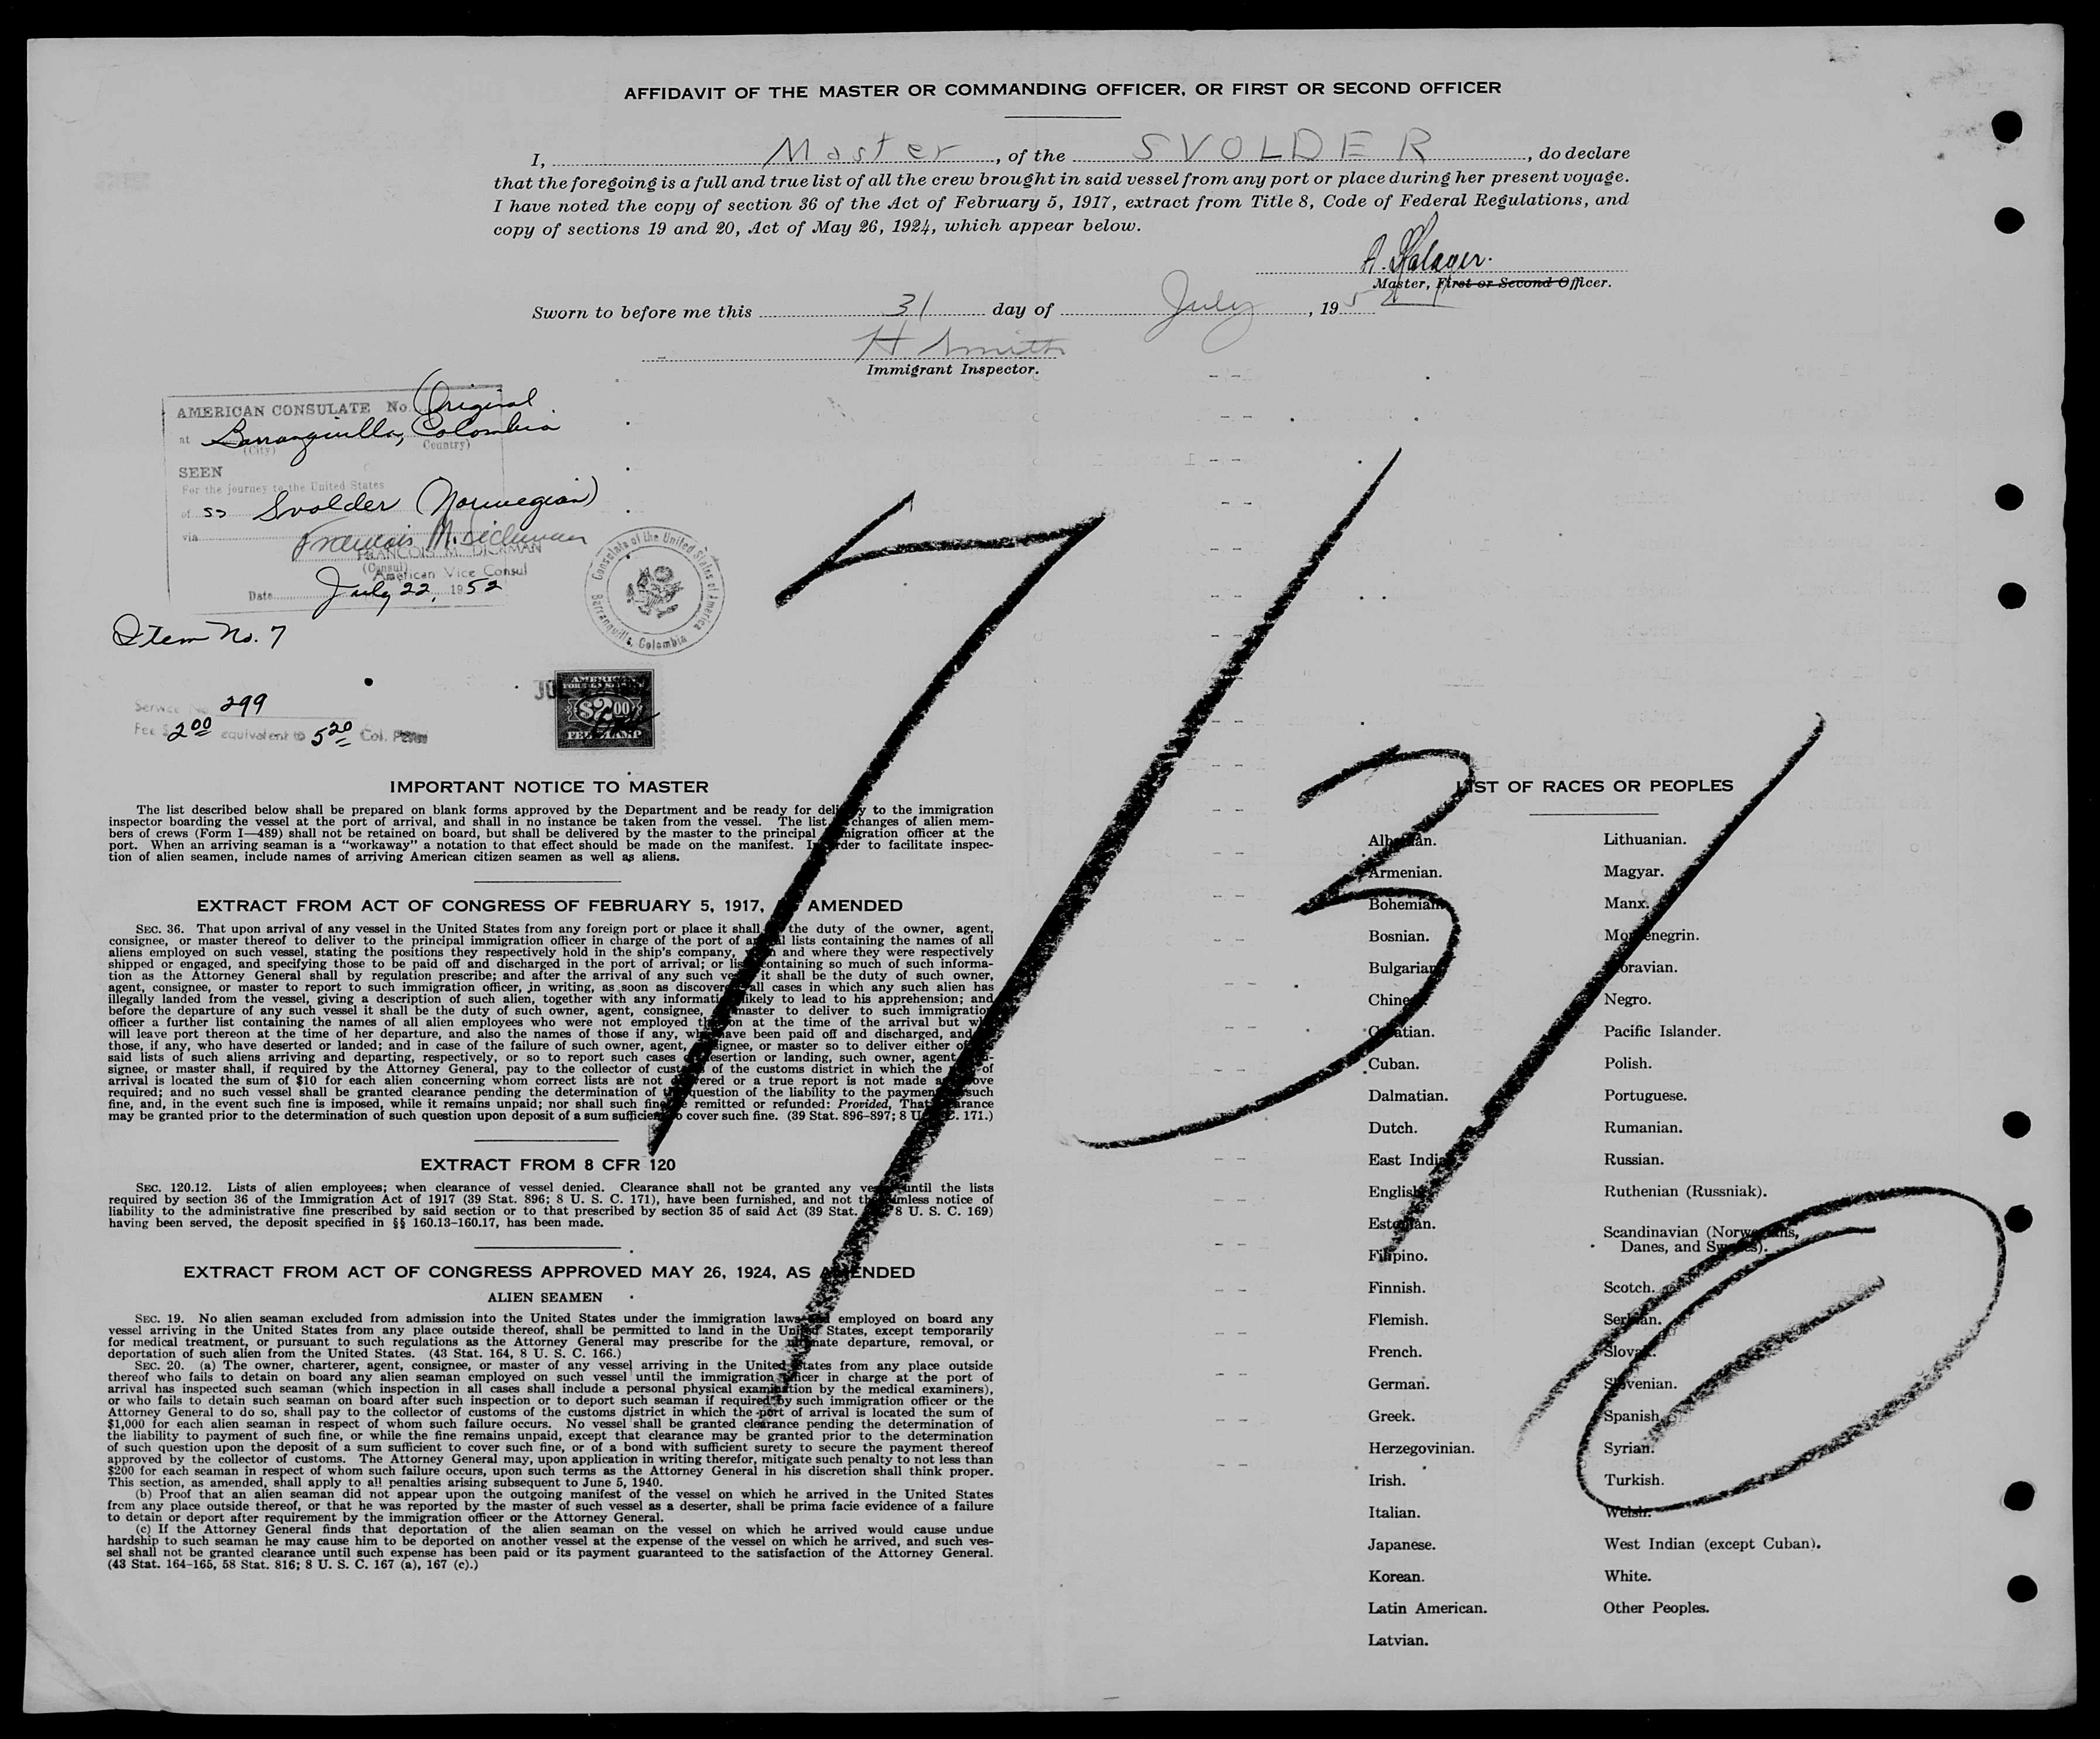 AFFIDAVIT OF THE MASTER OR COMMANDING OFFICER, OR FIRST OR SECOND OFFICER
I, Master, of the SVOLDER, do declare
that the foregoing is a full and true list of all the crew brought in said vessel from any port or place during her present voyage.
I have noted the copy of section 36 of the Act of February 5, 1917, extract from Title 8, Code of Federal Regulations, and
copy of sections 19 and 20, Act of May 26, 1924, which appear below.
Master, First or Second Officer.
Sworn to before me this 31 day of July, 195
H. Smith
Immigrant Inspector.
AMERICAN CONSULATE No. Original
at Barranquilla, Colombia
(City) Country)
SEEN
For the journey to the United States
of SS Svolder (Norwegian)
via
Francois M. Dickman
FRANCOIS M. DICKMAN
(Consul)
American Vice Consul
Date July 22, 1952
Consulate of the United States of America
Barranquilla, Colombia
Item No. 7
AMERICAN
$2.00
FEE STAMP
Service No. 299
Fee $ 2 00 equivalent to 5 20 Col. Pesos
7/31
IMPORTANT NOTICE TO MASTER
The list described below shall be prepared on blank forms approved by the Department and be ready for delivery to the immigration
inspector boarding the vessel at the port of arrival, and shall in no instance be taken from the vessel. The list changes of alien mem-
bers of crews (Form I—489) shall not be retained on board, but shall be delivered by the master to the principal immigration officer at the
port. When an arriving seaman is a "workaway" a notation to that effect should be made on the manifest. In order to facilitate inspec-
tion of alien seamen, include names of arriving American citizen seamen as well as aliens.
EXTRACT FROM ACT OF CONGRESS OF FEBRUARY 5, 1917, AS AMENDED
SEC. 36. That upon arrival of any vessel in the United States from any foreign port or place it shall be the duty of the owner, agent,
consignee, or master thereof to deliver to the principal immigration officer in charge of the port of arrival lists containing the names of all
aliens employed on such vessel, stating the positions they respectively hold in the ship's company, when and where they were respectively
shipped or engaged, and specifying those to be paid off and discharged in the port of arrival; or lists containing so much of such informa-
tion as the Attorney General shall by regulation prescribe; and after the arrival of any such vessel it shall be the duty of such owner,
agent, consignee, or master to report to such immigration officer, in writing, as soon as discovered, all cases in which any such alien has
illegally landed from the vessel, giving a description of such alien, together with any information likely to lead to his apprehension; and
before the departure of any such vessel it shall be the duty of such owner, agent, consignee, or master to deliver to such immigration
officer a further list containing the names of all alien employees who were not employed thereon at the time of the arrival but who
will leave port thereon at the time of her departure, and also the names of those if any, who have been paid off and discharged, and of
those, if any, who have deserted or landed; and in case of the failure of such owner, agent, consignee, or master so to deliver either of the
said lists of such aliens arriving and departing, respectively, or so to report such cases of desertion or landing, such owner, agent, con-
signee, or master shall, if required by the Attorney General, pay to the collector of customs of the customs district in which the port of
arrival is located the sum of $10 for each alien concerning whom correct lists are not delivered or a true report is not made as above
required; and no such vessel shall be granted clearance pending the determination of the question of the liability to the payment of such
fine, and, in the event such fine is imposed, while it remains unpaid; nor shall such fine be remitted or refunded: Provided, That clearance
may be granted prior to the determination of such question upon deposit of a sum sufficient to cover such fine. (39 Stat. 896-897; 8 U. S. C. 171.)
EXTRACT FROM 8 CFR 120
SEC. 120.12. Lists of alien employees; when clearance of vessel denied. Clearance shall not be granted any vessel until the lists
required by section 36 of the Immigration Act of 1917 (39 Stat. 896; 8 U. S. C. 171), have been furnished, and not then unless notice of
liability to the administrative fine prescribed by said section or to that prescribed by section 35 of said Act (39 Stat. 8 U. S. C. 169)
having been served, the deposit specified in §§ 160.13-160.17, has been made.
EXTRACT FROM ACT OF CONGRESS APPROVED MAY 26, 1924, AS AMENDED
ALIEN SEAMEN
SEC. 19. No alien seaman excluded from admission into the United States under the immigration laws and employed on board any
vessel arriving in the United States from any place outside thereof, shall be permitted to land in the United States, except temporarily
for medical treatment, or pursuant to such regulations as the Attorney General may prescribe for the ultimate departure, removal, or
deportation of such alien from the United States. (43 Stat. 164, 8 U. S. C. 166.)
SEC. 20. (a) The owner, charterer, agent, consignee, or master of any vessel arriving in the United States from any place outside
thereof who fails to detain on board any alien seaman employed on such vessel until the immigration officer in charge at the port of
arrival has inspected such seaman (which inspection in all cases shall include a personal physical examination by the medical examiners),
or who fails to detain such seaman on board after such inspection or to deport such seaman if required by such immigration officer or the
Attorney General to do so, shall pay to the collector of customs of the customs district in which the port of arrival is located the sum of
$1,000 for each alien seaman in respect of whom such failure occurs. No vessel shall be granted clearance pending the determination of
the liability to payment of such fine, or while the fine remains unpaid, except that clearance may be granted prior to the determination
of such question upon the deposit of a sum sufficient to cover such fine, or of a bond with sufficient surety to secure the payment thereof
approved by the collector of customs. The Attorney General may, upon application in writing therefor, mitigate such penalty to not less than
$200 for each seaman in respect of whom such failure occurs, upon such terms as the Attorney General in his discretion shall think proper.
This section, as amended, shall apply to all penalties arising subsequent to June 5, 1940.
(b) Proof that an alien seaman did not appear upon the outgoing manifest of the vessel on which he arrived in the United States
from any place outside thereof, or that he was reported by the master of such vessel as a deserter, shall be prima facie evidence of a failure
to detain or deport after requirement by the immigration officer or the Attorney General.
(c) If the Attorney General finds that deportation of the alien seaman on the vessel on which he arrived would cause undue
hardship to such seaman he may cause him to be deported on another vessel at the expense of the vessel on which he arrived, and such ves-
sel shall not be granted clearance until such expense has been paid or its payment guaranteed to the satisfaction of the Attorney General.
(43 Stat. 164-165, 58 Stat. 816; 8 U. S. C. 167 (a), 167 (c).)
LIST OF RACES OR PEOPLES
Albanian.
Armenian.
Bohemian.
Bosnian.
Bulgarian.
Chinese.
Croatian.
Cuban.
Dalmatian.
Dutch.
East Indian.
English.
Estonian.
Filipino.
Finnish.
Flemish.
French.
German.
Greek.
Herzegovinian.
Irish.
Italian.
Japanese.
Korean.
Latin American.
Latvian.
Lithuanian.
Magyar.
Manx.
Montenegrin.
Moravian.
Negro.
Pacific Islander.
Polish.
Portuguese.
Rumanian.
Russian.
Ruthenian (Russniak).
Scandinavian (Norwegians,
Danes, and Swedes).
Scotch.
Serbian.
Slovak.
Slovenian.
Spanish.
Syrian.
Turkish.
Welsh.
West Indian (except Cuban).
White.
Other Peoples.